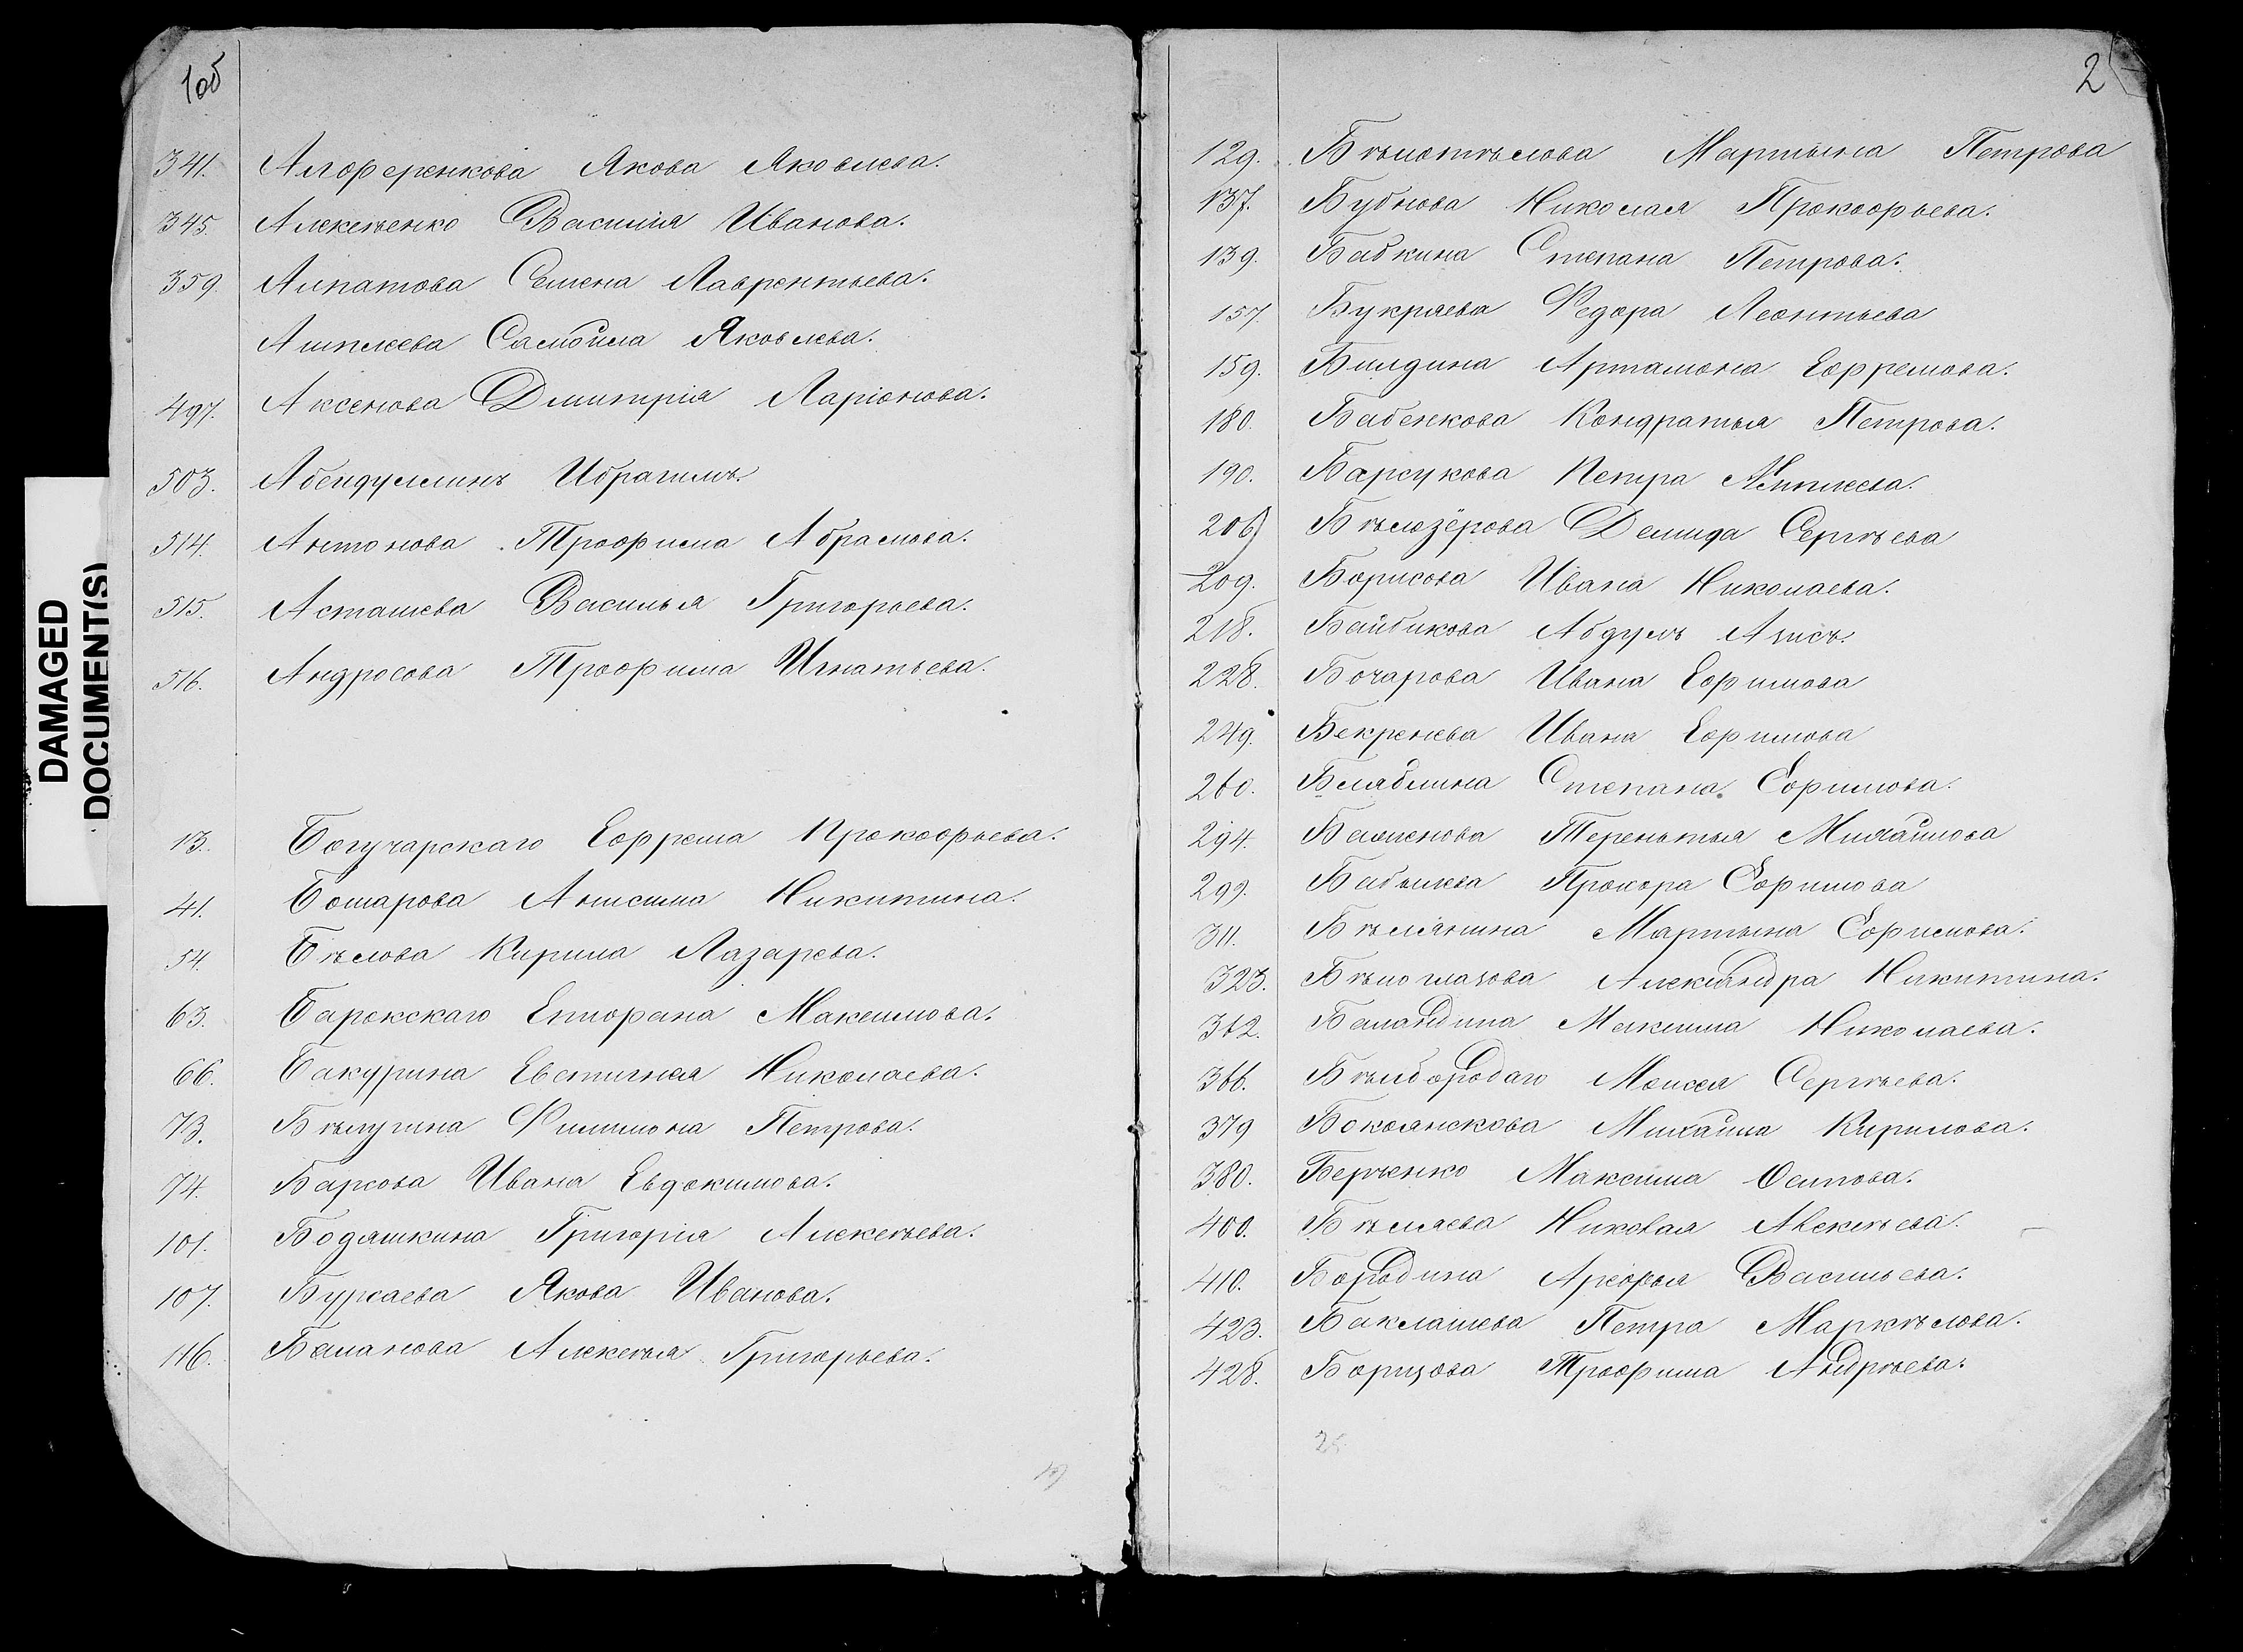 1об
341. Алференкова Якова Яковлева.
345. Алексѣенко Василія Иванова.
359. Алпатова Семена Лаврентьева.
Ашплеева Самойла Яковлева.
497. Аксенова Дмитрія Ларіонова.
503. Абейдуллинъ Ибрагимъ.
514. Антонова Трофима Абрамова.
515. Асташева Василья Григорьева.
516. Андросова Трофима Игнатьева.
13. Богучарскаго Ефрема Прокофьева.
41. Бошарова Анисима Никитина.
54. Бѣлова Кирила Лазарева.
63. Барокскаго Епифана Максимова.
66. Бакурина Евстигнея Николаева.
73. Бѣлугина Филимона Петрова.
74. Барсова Ивана Евдокимова.
101. Бодяшкина Григорія Алексѣева.
107. Буркаева Якова Иванова.
116. Баланова Алексѣя Григорьева.
2
129. Бѣлотѣлова Мартына Петрова
137. Бубнова Николая Прокофьева.
139. Бабкина Степана Петрова.
157. Букряева Федора Леонтьева
159. Билдина Артамона Ефремова.
180. Бабенкова Кондратья Петрова.
190. Барсукова Петра
206) Бѣлозёрова Демида Сергѣева
209. Борисова Ивана Николаева.
218. Байбикова Абдулъ Азисъ.
228. Бочарова Ивана Ефимова
249. Бекренева Ивана Ефимова
260. Бляблина Степана Ефимова.
294. Баженова Терентья Михайлова
299. Бабылева Прохора Ефимова
311. Бѣлянина Мартына Ефимова.
323. Бѣлоглазова Александра Никитина.
362. Баландина Максима Николаева.
366. Бѣлобородаго Моисея Сергѣева.
379 Боколнскова Михайла Кирилова.
380. Берченко Максима Осипова.
400. Бѣляева Николая Алексѣева.
410. Бородина Арефья Васильева.
423. Баклашева Петра Маркѣлова.
428. Борщова Трофима Андрѣева.
25.
DAMAGED
DOCUMENT(S)